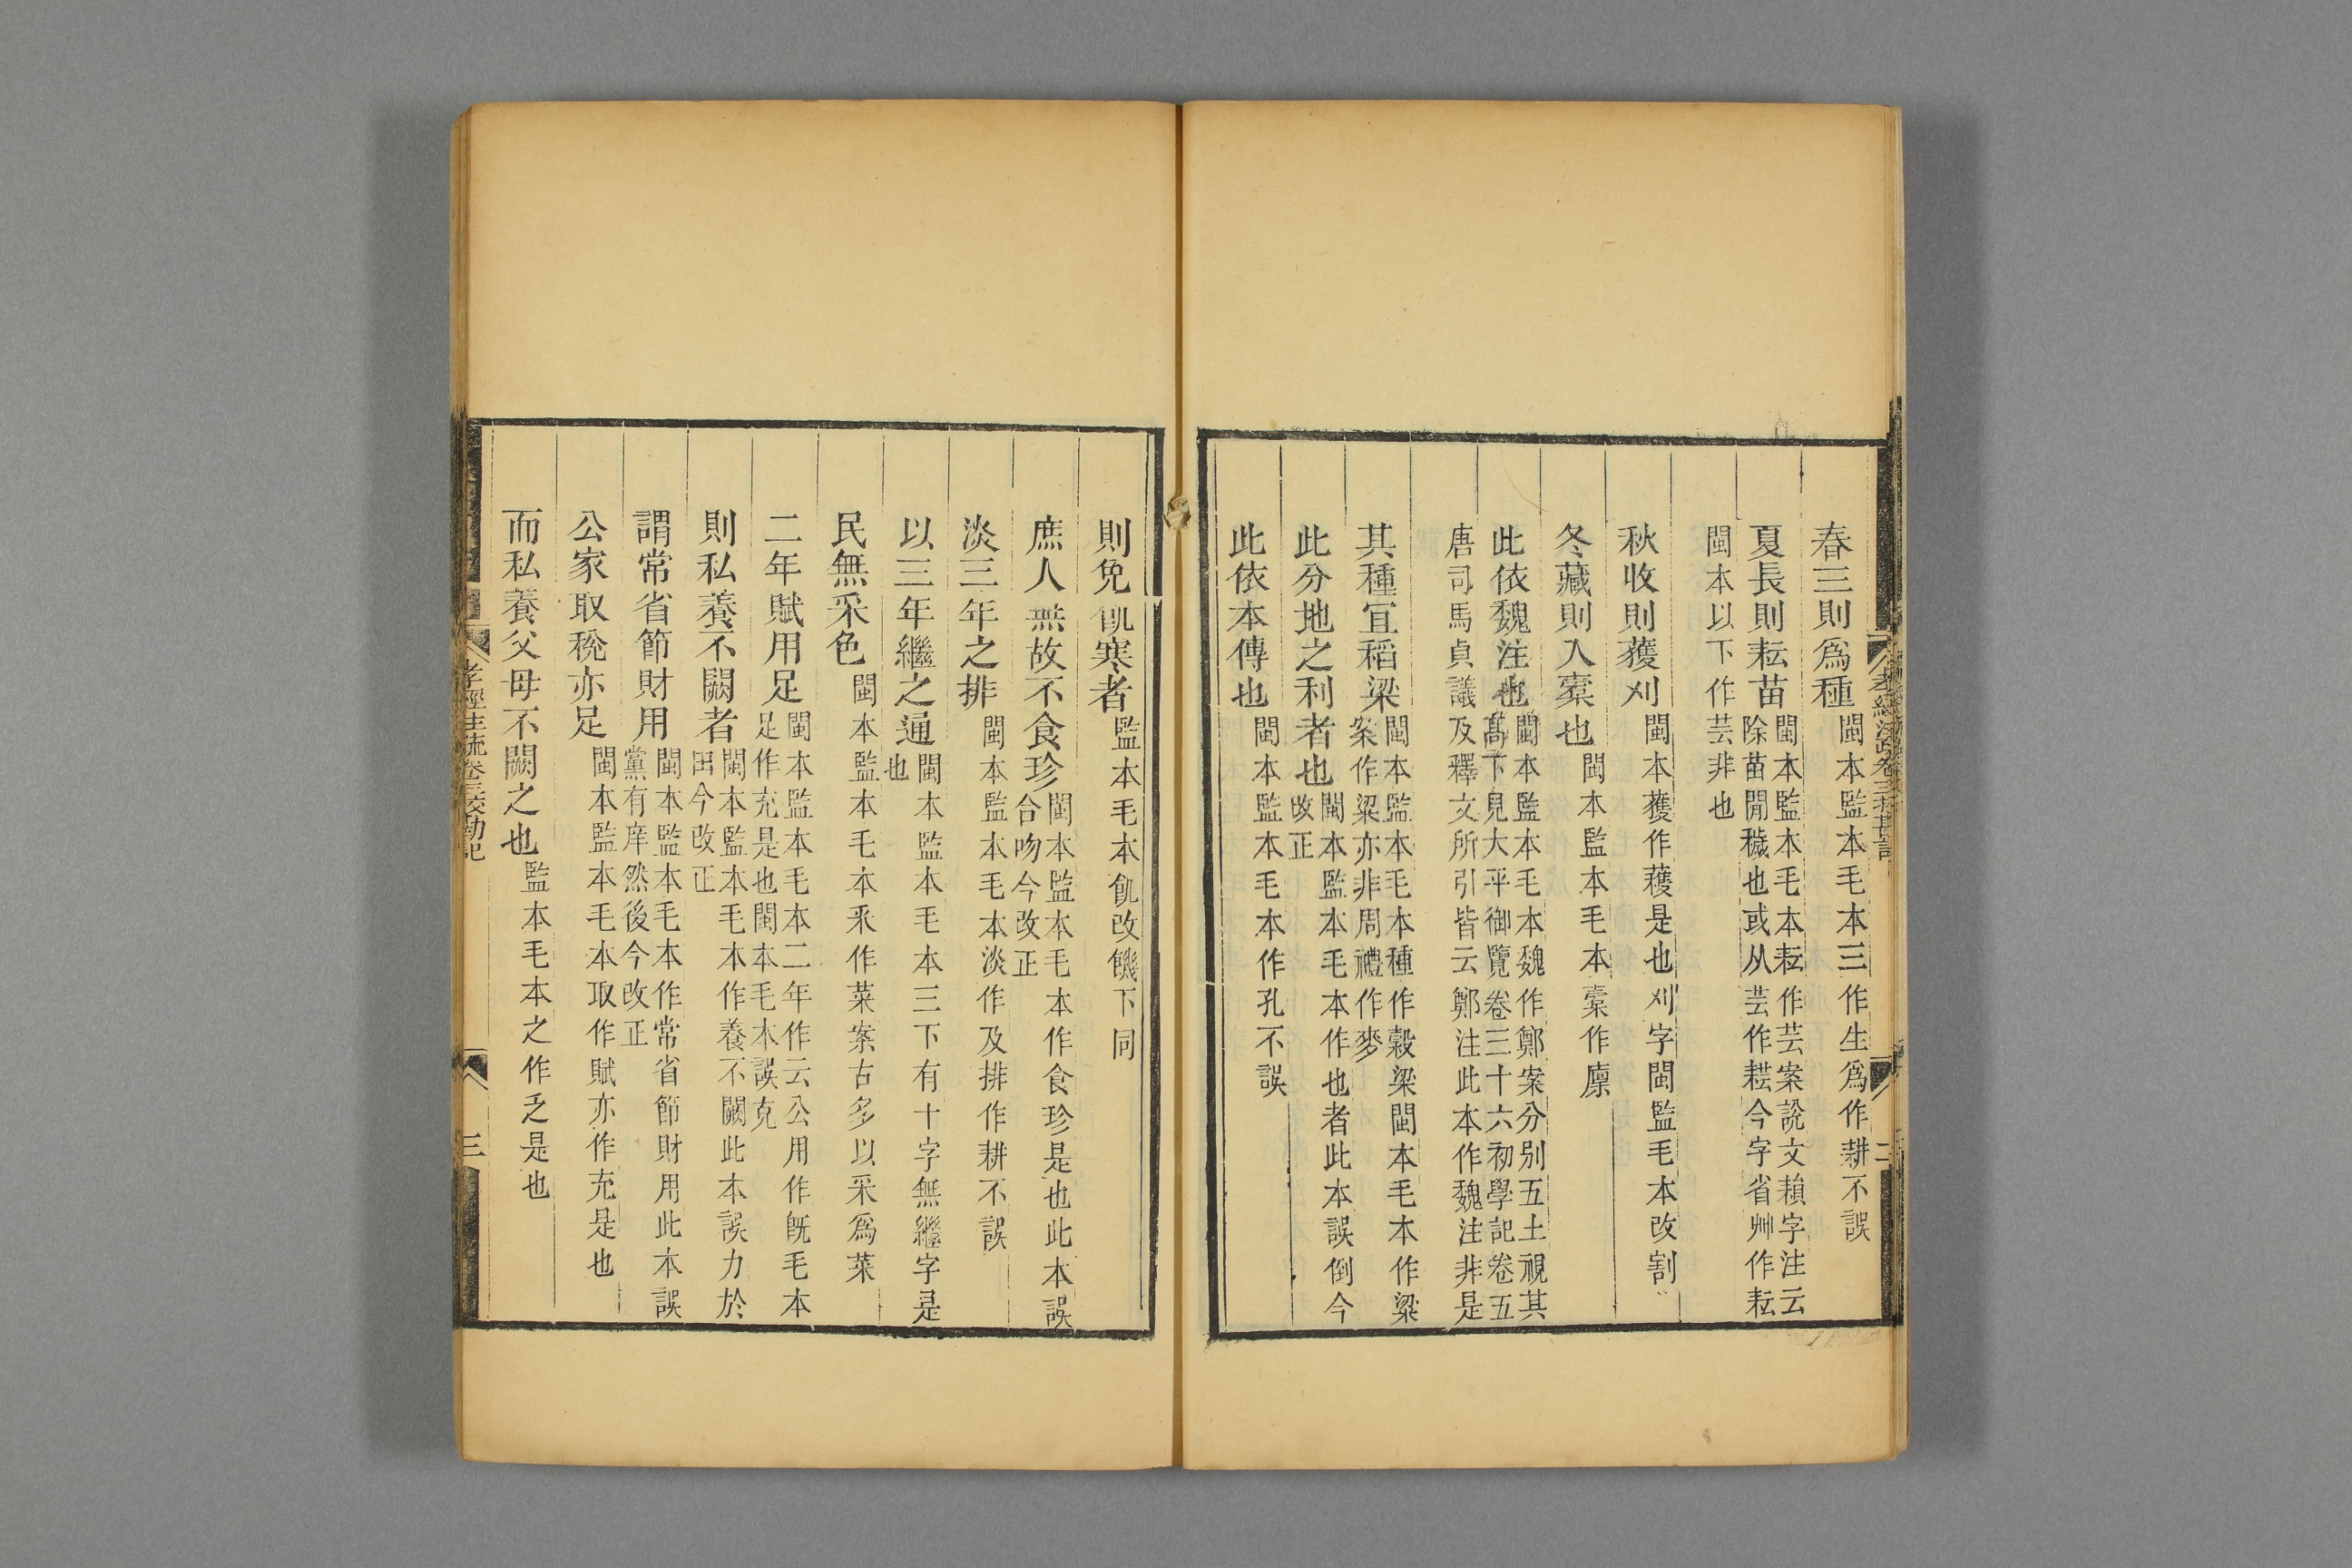 春三則爲種閩本監本毛本三作生爲作耕不誤
夏長則耘苗閩本監本毛本耘作芸案說文䅩字注云
除苗閒穢也或从芸作䅩今字省艸作耘
閩本以下作芸非也
秋收則蓷刈閩本蓷作穫是也刈字閩監毛本改割
冬藏則入稟也閩本監本毛本稟作廩
此依魏注也閩本監本毛本魏作鄭案分别五土視其
髙下見大平御覽卷三十六初學記卷五
唐司馬貞議及釋文所引皆云鄭注此本作魏注非是
其種宜稻梁閩本監本毛本種作穀梁閩本毛本作粱
案作粱亦非周禮作麥
此分地之利者也閩本監本毛本作也者此本誤倒今
改正
此依本傳也閩本監本毛本作孔不誤
則免飢寒者監本毛本飢改饑下同
庶人無故不食珍閩本監本毛本作食珍是也此本誤
合吻今改正
淡三年之排閩本監本毛本淡作及排作耕不誤
以三年繼之通閩本監本毛本三下有十字無繼字是
也
民無采色閩本監本毛本釆作菜案古多以采爲菜
二年賦用足閩本監本毛本二年作云公用作既毛本
足作充是也閩本毛本誤克
則私養不闕者閩本監本毛本作養不闕此本誤力於
田今改正
謂常省節財用閩本監本毛本作常省節財用此本誤
黨有庠然後今改正
公家取稅亦足閩本監本毛本取作賦亦作充是也
而私養父母不闕之也監本毛本之作乏是也
孝經注疏卷三校勘記
三